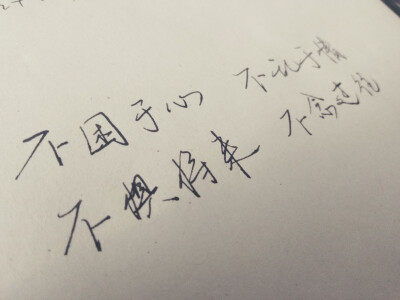 不困于心 不乱于情
不惧将来 不念过往